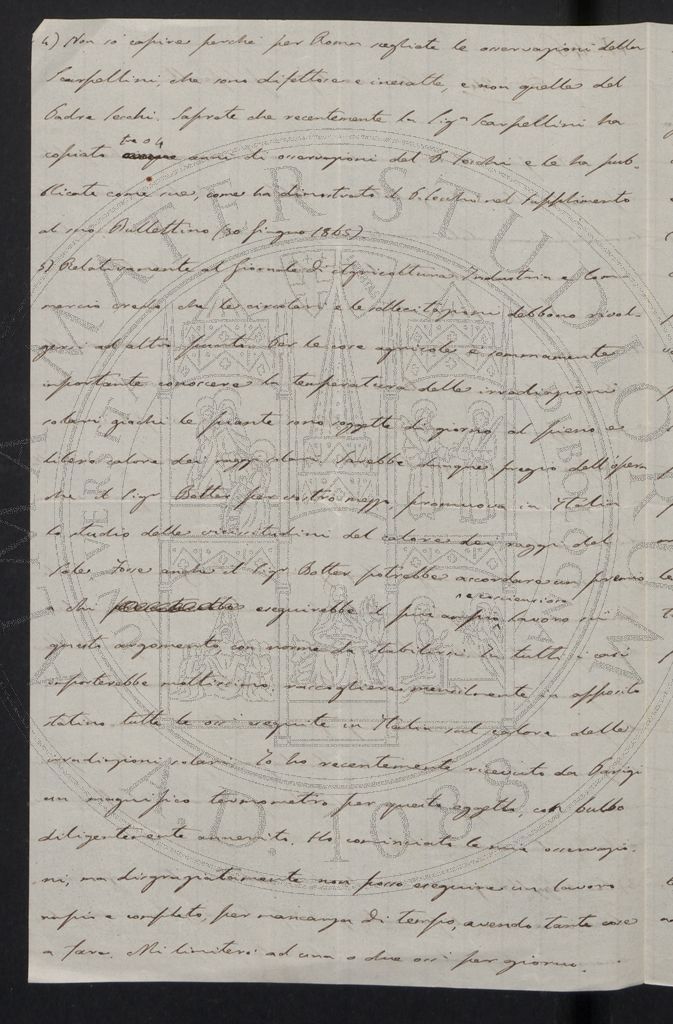 4) Non so capire perchè per Roma scegliate le osservazioni della
Scarpellini, che sono difettose e inesatte, e non quelle del
Padre Secchi. Saprete che recentemente la Sigª Scarpellini ha
copiato tre o 4 anni di osservazioni del P. Secchi e le ha pub-
blicate come sue, come ha dimostrato il P. Secchi nel Supplimento
al suo Bullettino (30 Giugno 1865).
5) Relativamente al Giornale di Agricoltura Industria e Com-
mercio credo che le circolari e le sollecitazioni debbono rivol-
gersi ad altro punto. Per le cose agricole è sommamente
importante conoscere la temperatura delle irradiazioni
solari giacchè le piante sono soggette di giorno al pieno e
libero calore dei raggi solari. Sarebbe dunque pregio dell'opera
che il Sigr Botter per vostro mezzo, promuova in Italia
lo studio delle vicissitudini del calore dei raggi del
Sole. Forse anche il Sigr Botter potrebbe accordare un premio
a chi eseguirebbe il più ampio lavoro su
questo argomento, con norme da stabilirsi. In tutti i casi
importerebbe moltissimo raccogliere mensilmente in apposito
statino tutte le ossi eseguite in Italia sul calore delle
irradiazioni solari. Io ho recentemente ricevuto da Parigi
un magnifico termometro per questo oggetto, con bulbo
diligentemente annerito. Ho cominciato le mie osservazio-
ni, ma disgraziatamente non posso eseguire un lavoro
ampio e completo, per mancanza di tempo, avendo tante cose
a fare. Mi limiterò ad una o due ossi per giorno.
ALMA MATER STUDIORUM
A.D. 1088